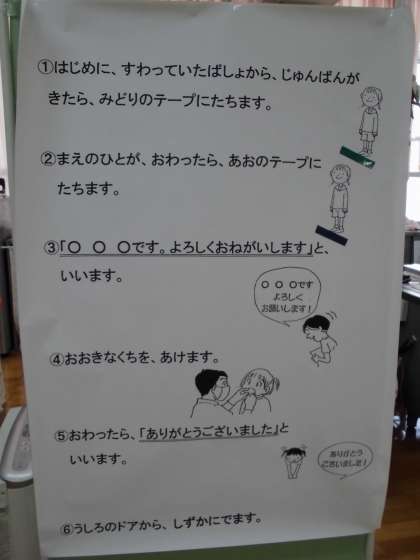 ①はじめに、すわっていたばしょから、じゅんばんが
きたら、みどりのテープにたちます。
②まえのひとが、おわったら、あおのテープに
たちます。
③「○ ○ ○です。よろしくおねがいします」と、
いいます。
○ ○ ○です
よろしく
お願いします！
④おおきなくちを、あけます。
⑤おわったら、「ありがとうございました」と
いいます。
ありがとう
ございました！
⑥うしろのドアから、しずかにでます。